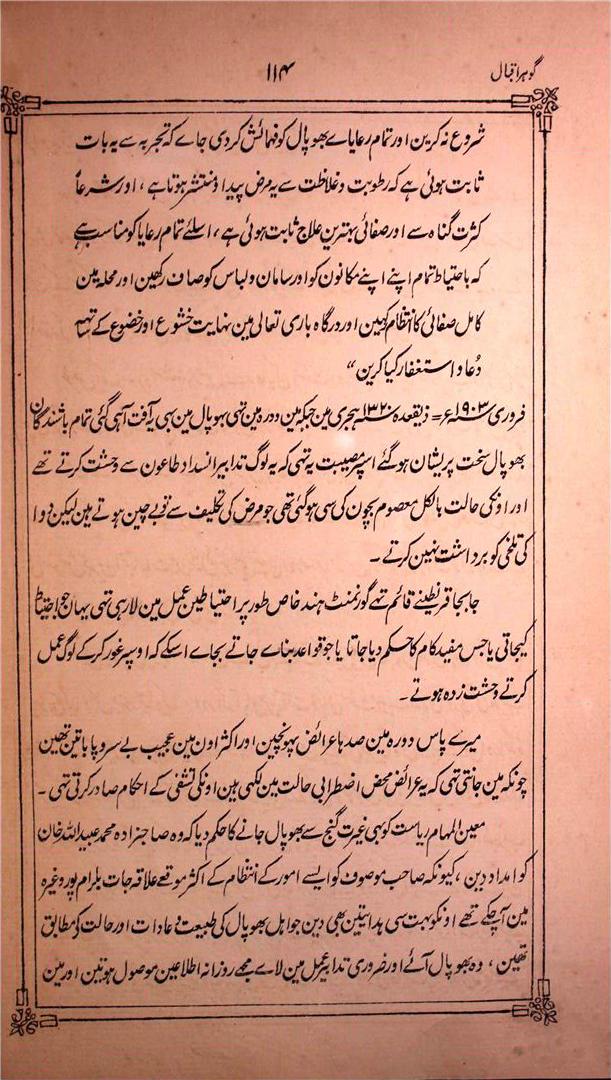 گوہر اقبال
۱۱۴
شروع نہ کرین اور تمام رعایاے بھوپال کو فہمائش کردی جاے کہ تجربہ سے یہ بات
ثابت ہوئی ہے کہ رطوبت و غلاظت سے یہ مرض پیدا و منتشر ہوتا ہے ، اور شرعاً
کثرت گناہ سے اور صفائی بہترین علاج ثابت ہوئی ہے ، اسلئے تمام رعایا کو مناسب ہے
کہ باحتیاط تمام اپنے اپنے مکانون کو اور سامان و لباس کو صاف رکھین اور محلہ مین
کامل صفائی کا انتظام رکہین اور درگاہ باری تعالی مین نہایت خشوع اور خضوع کے ساتہہ
دُعا و استغفار کیا کرین “
فروری ۱۹۰۳ء = ذیقعدہ ۱۳۲۰ ہجری مین جبکہ مین دورہ مین تہی بہوپال مین بہی یہ آفت آہی گئی تمام باشندگان
بھوپال سخت پریشان ہو گئے اسپر مصیبت یہ تہی کہ یہ لوگ تدابیر انسداد طاعون سے وحشت کرتے تھے
اور اونکی حالت بالکل معصوم بچون کی سی ہوگئی تھی جو مرض کی تکلیف سے تو بے چین ہوتے ہین لیکن دوا
کی تلخی کو برداشت نہین کرتے ۔
جابجا قرنطینے قائم تہے گورنمنٹ ہند خاص طور پر احتیاطین عمل مین لارہی تہی یہان جو احتیاط
کیجاتی یا جس مفید کام کا حکم دیا جاتا یا جو قواعد بناے جاتے بجاے اسکے کہ اوسپر غور کرکے لوگ عمل
کرتے وحشت زدہ ہوتے ۔
میرے پاس دورہ مین صدہا عرائض پہونچین اور اکثر اون مین عجیب بے سروپا باتین تھین
چونکہ مین جانتی تہی کہ یہ عرائض محض اضطرابی حالت مین لکہی ہین اونکی تشفی کے احکام صادر کرتی تہی ۔
معین المہام ریاست کو بہی غیرت گنج سے بھوپال جانے کا حکم دیا کہ وہ صاحبزادہ محمد عبید اللہ خان
کو امداد دین ، کیونکہ صاحب موصوف کو ایسے امور کے انتظام کے اکثر موقعے علاقہ جات بلرام پور وغیرہ
مین آچکے تھے اونکو بہت سی ہدایتین بھی دین جو اہل بھوپال کی طبیعت و عادات اور حالت کے مطابق
تھین ، وہ بھوپال آئے اور ضروری تدابیر عمل مین لاے مجھے روزانہ اطلاعین موصول ہوتین اور مین